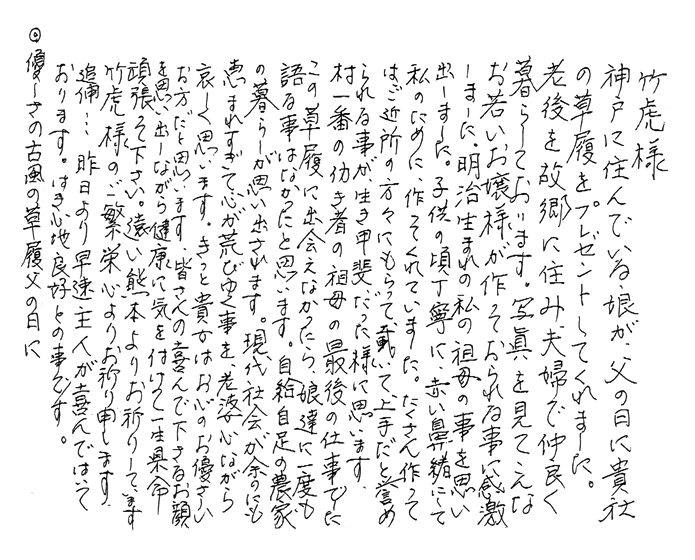 竹虎様
神戸に住んでいる娘が、父の日に貴社
の草履をプレゼントしてくれました。
老後を故郷に住み夫婦で仲良く
暮らしております。写真を見てこんな
お若いお嬢様が作っておられる事に感激
しました。明治生まれの私の祖母の事を思い
出しました。子供の頃丁寧に、赤い鼻緒にして
私のために、作ってくれていました。たくさん作って
はご近所の方々にもらって戴いて上手だと誉め
られる事が生き甲斐だった様に思います。
村一番の働き者の祖母の最後の仕事でした
この草履に出会えなかったら、娘達に一度も
語る事はなかったと思います。自給自足の農家
の暮らしが思い出されます。現代社会が余りにも
恵まれすぎて心が荒びゆく事を、老婆心ながら
哀しく思います。きっと貴方はお心のお優さしい
お方だと思います、皆さんの喜んで下さるお顔
を思い出しながら健康に気を付けて一生懸命
頑張って下さい。遠い熊本よりお祈りしています
竹虎様のご繁栄心よりお祈り申します、
追伸… 昨日より早速主人が喜んではいて
おります。はき心地良好との事です。
◎優しさの古風の草履父の日に